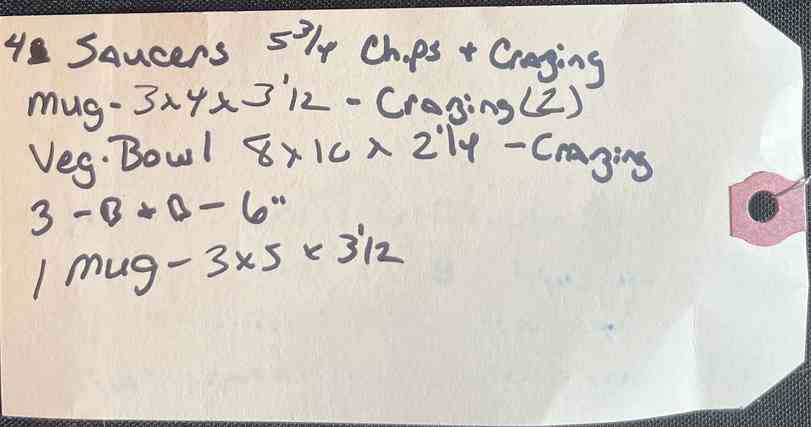 4 Saucers 5 3/4 Chips + Crazing
Mug - 3x4x3 1/2 - Crazing (2)
Veg. Bowl 8x10 x 2 1/4 - Crazing
3 - B + B - 6"
1 Mug - 3x5 x 3 1/2